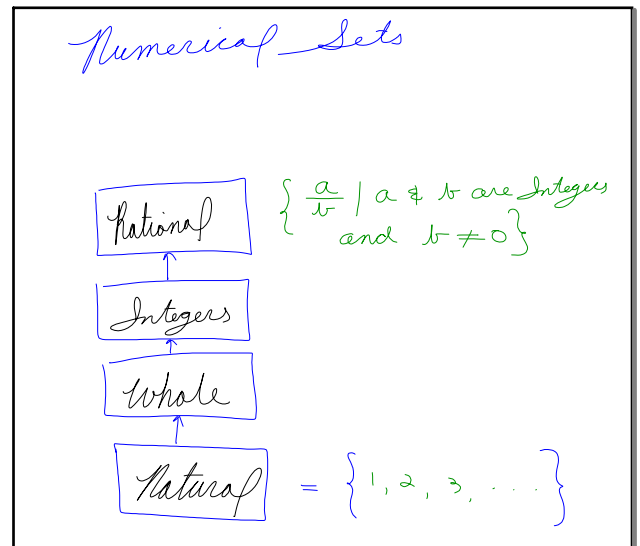 Numerical Sets
Rational { a/b | a & b are Integers
and b ≠ 0 }
Integers
Whole
Natural = { 1, 2, 3, .... }